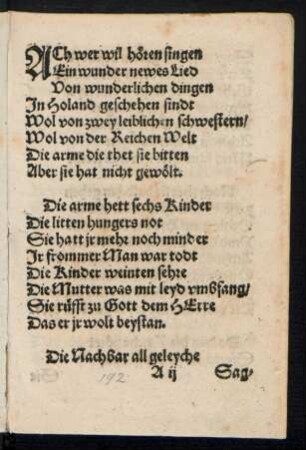 ACh wer wil hören singen
Ein wunder newes Lied
Von wunderlichen dingen
In Holand geschehen sindt
Wol von zwey leiblichen schwestern/
Wol von der Reichen Welt
Die arme die thet sie bitten
Aber sie hat nicht gewölt.
Die arme hett sechs Kinder
Die litten hungers not
Sie hatt jr mehr noch minder
Jr frommer Man war todt
Die Kinder weinten sehre
Die Mutter was mit leyd vmbfang/
Sie rüfft zu Gott dem HErre
Das er jr wolt beystan.
Die Nachbar all geleyche
192
A ij
Sag/